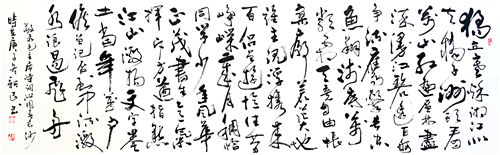 独立寒秋湘江北
去橘子洲头看
万山红遍层林尽
染漫江碧透百舸
争流鹰击长空
鱼翔浅底万
类霜天竞自由怅
寥廓问苍茫大地
谁主沉浮携来
百侣曾游忆往昔
峥嵘岁月稠恰
同学少年风华
正茂书生意气
挥斥方遒指点
江山激扬文字粪
土当年万户
侯曾记否到中流击
水浪遏飞舟
毛主席诗词沁园春长沙
时在庚子